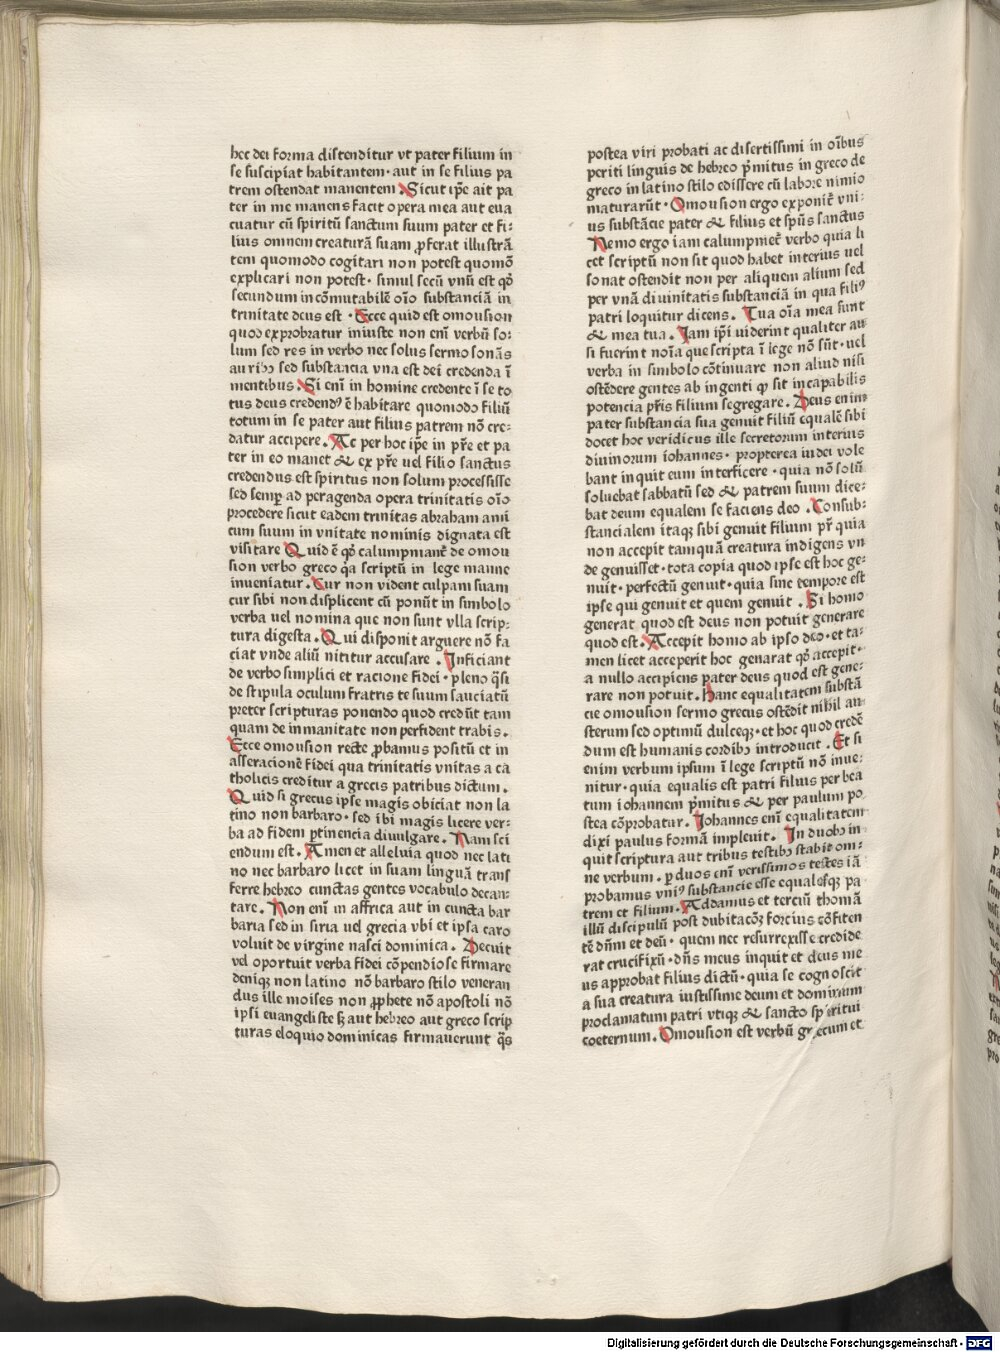 hec dei forma distenditur vt pater filium in
se suscipiat habitantem · aut in se filius pa
trem ostendat manentem . Sicut ip̄e ait pa
ter in me manens facit opera mea aut eua
cuatur cū spiritū sanctum suum pater et fi:
lius omnem creaturā suam ꝓferat illustrā
tem quomodo cogitari non potest quomō
explicari non potest · simul secū vnū est qd̕
secundum incōmutabilē oīo substanciā in
trinitate deus est · Ecce quid est omousion
quod exprobratur iniuste non enī verbū so:
lum sed res in verbo nec solus sermo sonās
aurib⁹ sed substancia vna est dei credenda ī
mentibus . Si enī in homine credente ī se to
tus deus credend⁹ ē habitare quomodo filiū
totum in se pater aut filius patrem nō cre:
datur accipere . Ac per hoc ip̄e in pr̄e et pa
ter in eo manet & ex pr̄e uel filio sanctus
credendus est spiritus non solum processisse
sed semp̱ ad peragenda opera trinitatis oīo
procedere sicut eadem trinitas abraham ami
cum suum in vnitate nominis dignata est
visitare Quid ē qd̕ calumpniant̕ de omou
sion verbo greco q̄a scriptū in lege manne
inueniatur . Cur non vident culpam suam
cur sibi non displicent cū ponūt in simbolo
verba uel nomina que non sunt vlla scrip:
tura digesta . Qui disponit arguere nō fa
ciat vnde aliū nititur accusare . Inficiant
de verbo simplici et racione fidei · pleno q̄si
de stipula oculum fratris te suum sauciatū
preter scripturas ponendo quod credūt tam
quam de inmanitate non perfident trabis .
Ecce omousion recte ꝓbamus positū et in
asseracionē fidei qua trinitatis vnitas a ca
tholicis creditur a grecis patribus dictum .
Quid si grecus ipse magis obiciat non la
tino non barbaro · sed ibi magis licere ver:
ba ad fidem ꝑtinencia diuulgare . Nam sci
endum est . Amen et alleluia quod nec lati
no nec barbaro licet in suam linguā trans
ferre hebreo cunctas gentes vocabulo decan:
tare . Non enī in affrica aut in cuncta bar
baria sed in siria uel grecia vbī et ipsa caro
voluit de virgine nasci dominica . Decuit
vel oportuit verba fidei cōpendiose firmare
deniqꝫ non latino nō barbaro stilo veneran
dus ille moises non ꝓphete nō apostoli nō
ipsi euangeliste sꝫ aut hebreo aut greco scrip
turas eloquio dominicas firmauerunt q̄s
postea viri probati ac disertissimi in oībus
periti linguis de hebreo pͥmitus in greco de
greco in latino stilo edissere cū labore nimio
maturarūt · Omousion ergo exponit̕ vni:
us substācie pater & filius et spūs sanctus
Nemo ergo iam calumpniet̕ verbo quia li
cet scriptū non sit quod habet interius uel
sonat ostendit non per aliquem alium sed
per vnā diuinitatis substanciā in qua fili⁹
patri loquitur dicens . Tua oīa mea sunt
& mea tua . Iam ip̄i uiderint qualiter au
si fuerint noīa que scripta ī lege nō sūt · uel
verba in simbolo cōtinuare non aliud nisi
ostēdere gentes ab ingenti qꝫ sit incapabilis
potencia pr̄is filium segregare . Deus enim
pater substancia sua genuit filiū equalē sibi
docet hoc veridicus ille secretorum interius
diuinorum iohannes · propterea iudei vole
bant inquit eum interficere · quia nō solū
soluebat sabbatū sed & patrem suum dice:
bat deum equalem se faciens deo . Consub:
stancialem itaqꝫ sibi genuit filium pr̄ quia
non accepit tamquā creatura indigens vn
de genuisset · tota copia quod ipse est hoc ge:
nuit · perfectū genuit · quia sine tempore est
ipse qui genuit et quem genuit . Si homo
generat quod est deus non potuit generare
quod est . Accepit homo ab ipso deo · et ta:
men licet acceperit hoc genarat qd̕ accepit ·
a nullo accipiens pater deus quod est gene:
rare non potuit . Hanc equalitatem substā
cie omousion sermo grecus ostēdit nihil au:
sterum sed optimū dulceqꝫ · et hoc quod credē
dum est humanis cordibꝫ introducit . Et si
enim verbum ipsum ī lege scriptū nō inue:
nitur · quia equalis est patri filius per bea
tum iohannem pͥmitus & per paulum po
stea cōprobatur . Iohannes enī equalitatem
dixi paulus formā impleuit . In duobꝫ in
quit scriptura aut tribus testibꝫ stabit om:
ne verbum . ꝑ duos enī verissimos testes iā
probamus vni⁹ substancie esse equalesqꝫ pa
trem et filium . Addamus et terciū thomā
illū discipulū post dubitacōꝫ forcius cōfiten
tē dn̄m et deū · quem nec resurrexisse credide
rat crucifixū · dn̄s meus inquit et deus me
us approbat filius dictū · quia se cognoscit
a sua creatura iustissime deum et dominum
proclamatum patri vtiqꝫ & sancto spiritui
coeternum . Omousion est verbū grecum et
Digitalisierung gefördert durch die Deutsche Forschungsgemeinschaft - DFG